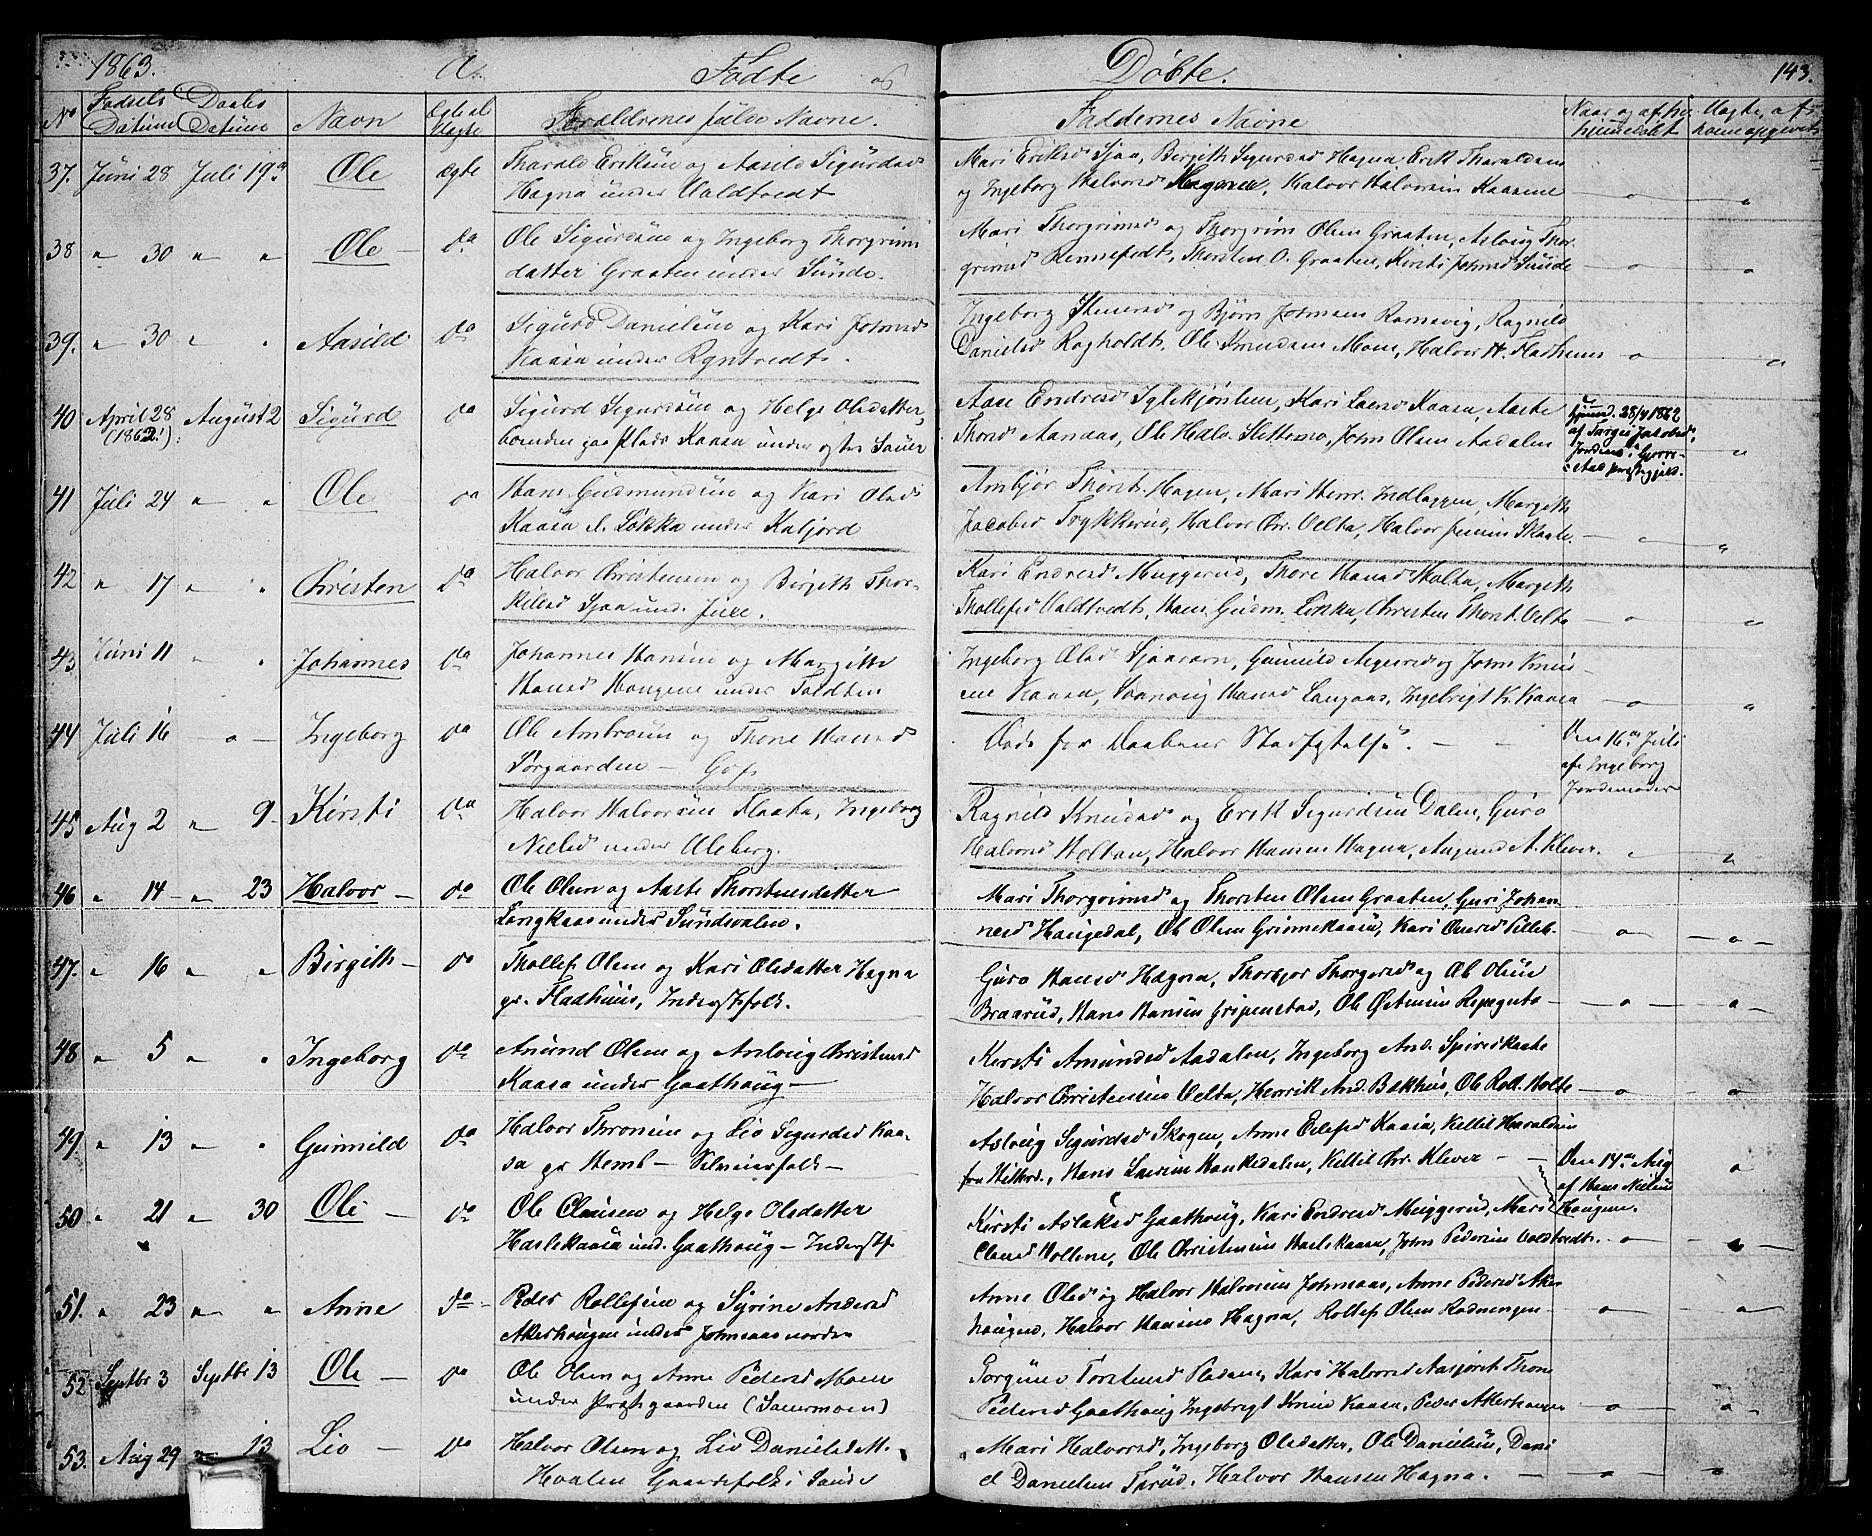 1863. A. Fødte og Døbte. 143.
No Fødsels Datum Daabs Datum Navn Forældrenes fulde Navne. Faddernes Navne
37. Juni 28 Juli 19de Ole ægte Tharald Eriksøn og Aasild Sigurdsd
Hagna under Valdtvedt
Mari Eriksd Sjaa, Birgith Sigurdsd Hagna, Erik Tharaldsen
og Ingeborg Halvorsd Hagna, Halvor Halvorsen Kaasene
38 " 30 " " Ole - do Ole Sigurdsøn og Ingeborg Thorgrims
datter Graaten under Sunde.
Mari Thorgrimsd og Thorgrim Olsen Graaten, Asloug Thor-
grimsd Rennefedt, Thorsten O. Graaten, Kirsti Johnsd Sunde
39. " 30 " " Aasild do Sigurd Danielsøn og Kari Johnsd
Kaasa under Ryntvedt.
Ingeborg Steinersd og Bjørn Johnsen Ramsvig, Ragnild
Danielsd Ragholdt, Ole Knudsen Moen, Halvor H. Fladhuus
40 April 28 (1862!): August 2 Sigurd do Sigurd Sigurdsøn og Helge Olsdatter,
boende paa Plads Kaasa under østre Sauer
Aase Endresd Iglekjønlien, Kari Larsd Kaasa, Aaste
Thorsd Aanaas, Ole Halv. Slettemo, John Olsen Aadalen
hjemd. 28/4 1862
af Torger Jacobsd,
Jordemo. i Gjerre-
stad præstegjeld.
41 Juli 24 " " Ole do Hans Gudmundsøn og Kari Olsd
Kaasa el. Løkka under Katfjord
Ambjør Thorst. Hagen, Mari Henr. Indlaggen, Margith
Jacobsd Trykkerud, Halvor Chr. Velta, Halvor Jensen Skaate.
42 " 17 " " Christen do Halvor Christensen og Birgith Thor-
kilsd Sjaa und. Juve.
Kari Endresd Muggerud, Thore Hansd Holta, Margith
Thollefsd Valdtvedt, Hans Gudm. Løkka, Christen Thorst. Velta
43 Juni 11 " " Johannes do Johannes Hansøn og Margith
Hansd Haugene under Tveidten
Ingeborg Olsd Sjaavarn, Gunnild Aagesd og John Knud-
sen Kaasa, Svanoug Hansd Langaas, Ingebrigt K. Kaasa
44 Juli 16 - " - Ingeborg do Ole Ambrosøn og Thone Hansd
Sørgaarden - Gaf.
Døde før Daabens Stadfæstelse. - -
Den 16de Juli
af Ingeborg
Jordemoder
45 Aug 2 " 9 - Kirsti do Halvor Halvorsøn Flaata, Ingeborg
Nielsd under Aleberg.
Ragnild Knudsd og Erik Sigurdsøn Dalen, Guro
Halvorsd Holtan, Halvor Hansen Hagna, Aagund A. Klever.
46 " 14 - " 23 Halvor - do Ole Olsen og Aaste Thorstensdatter
Langkaas under Sundsvalen.
Mari Thorgrimsd og Thorsten Olsen Graaten, Guri Johan-
nesd Haugedal, Ole Olsen Grinnekaasa, Kari Olsd Pilleb.
47. " 16 " " Birgith - do Thollef Olsen og Kari Olsdatter Hagna
gr. Fladhuus, Inderstfolk.
Guro Hansd Hagna, Thorbjør Thorgersd og Ole Olsøn
Braarud, Hans Hansen Gripenstad, Ole Østensen
48 " 5 " " Ingeborg do Amund Olsen og Anloug Christensd
Kaasa under Gaathoug -
Kirsti Amundsd Aadalen, Ingeborg And. Spirekaate
Halvor Christensen Velta, Henrik And. Bækhuus, Ole Roll. Holte
49. " 13 " " Gunnild do Halvor Thronsen og Liv Sigurdsd Kaa-
sa gr Hemb - Selveierfolk -
Aslaug Sigurdsd Skogen, Anne Eilefsd Kaasa, Kittil Haraldsøn
fra Hitterd., Hans Larsen Hankedalen, Kittil Chr. Klever - -
Den 14de Aug
af Hans Nielsøn
Haugene.
50 " 21 " 30 Ole - do Ole Clausen og Helge Olsdatter
Haslekaasa und. Gaathoug - Inderstf.
Kirsti Aslaksd Gaathoug, Kari Endresd Muggerud, Mari
Clausd Hollene, Ole Christensen Haslekaasa, John Pedersen Valdtvedt.
51. " 23 " " Anne do - Peder Rollefsøn og Syrine Andersd
Akerhaugen under Johnsaas nordre
Anne Olsd og Halvor Halvorsen Johnsaas, Anne Pedersd Aker-
haugen, Halvor Hansen Hagna, Rollef Olsen Rodningen
52 Septbr 3 Septbr 13 Ole - do Ole Olsen og Anne Pedersd Moen
under Præstgaarden (Sauermoen)
Jorgine Torstensd Pladsen, Kari Halvorsd Aasjøret. Thone
Pedersd Gaathoug Ingebrigt Knuds Kaasa, Peder Akerhaugen
53. Aug 29 " 13 Liv - do Halvor Olsen og Liv Danielsd M.
Hoalen Gaardefolk i Sunde
Mari Halvorsd, Ingeborg Olsdatter, Ole Danielsøn, Dani-
el Danielsen Tørud, Halvor Hansen Hagna. -